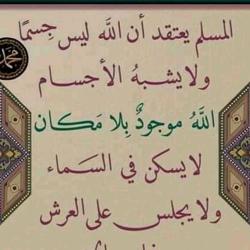 المسلم يعتقد أن الله ليس جِسمًا
ولا يشبهُ الأجسام
اللَّهُ موجودٌ بِلا مَكان
لا يسكن في السَماء
ولا يجلس على العرش